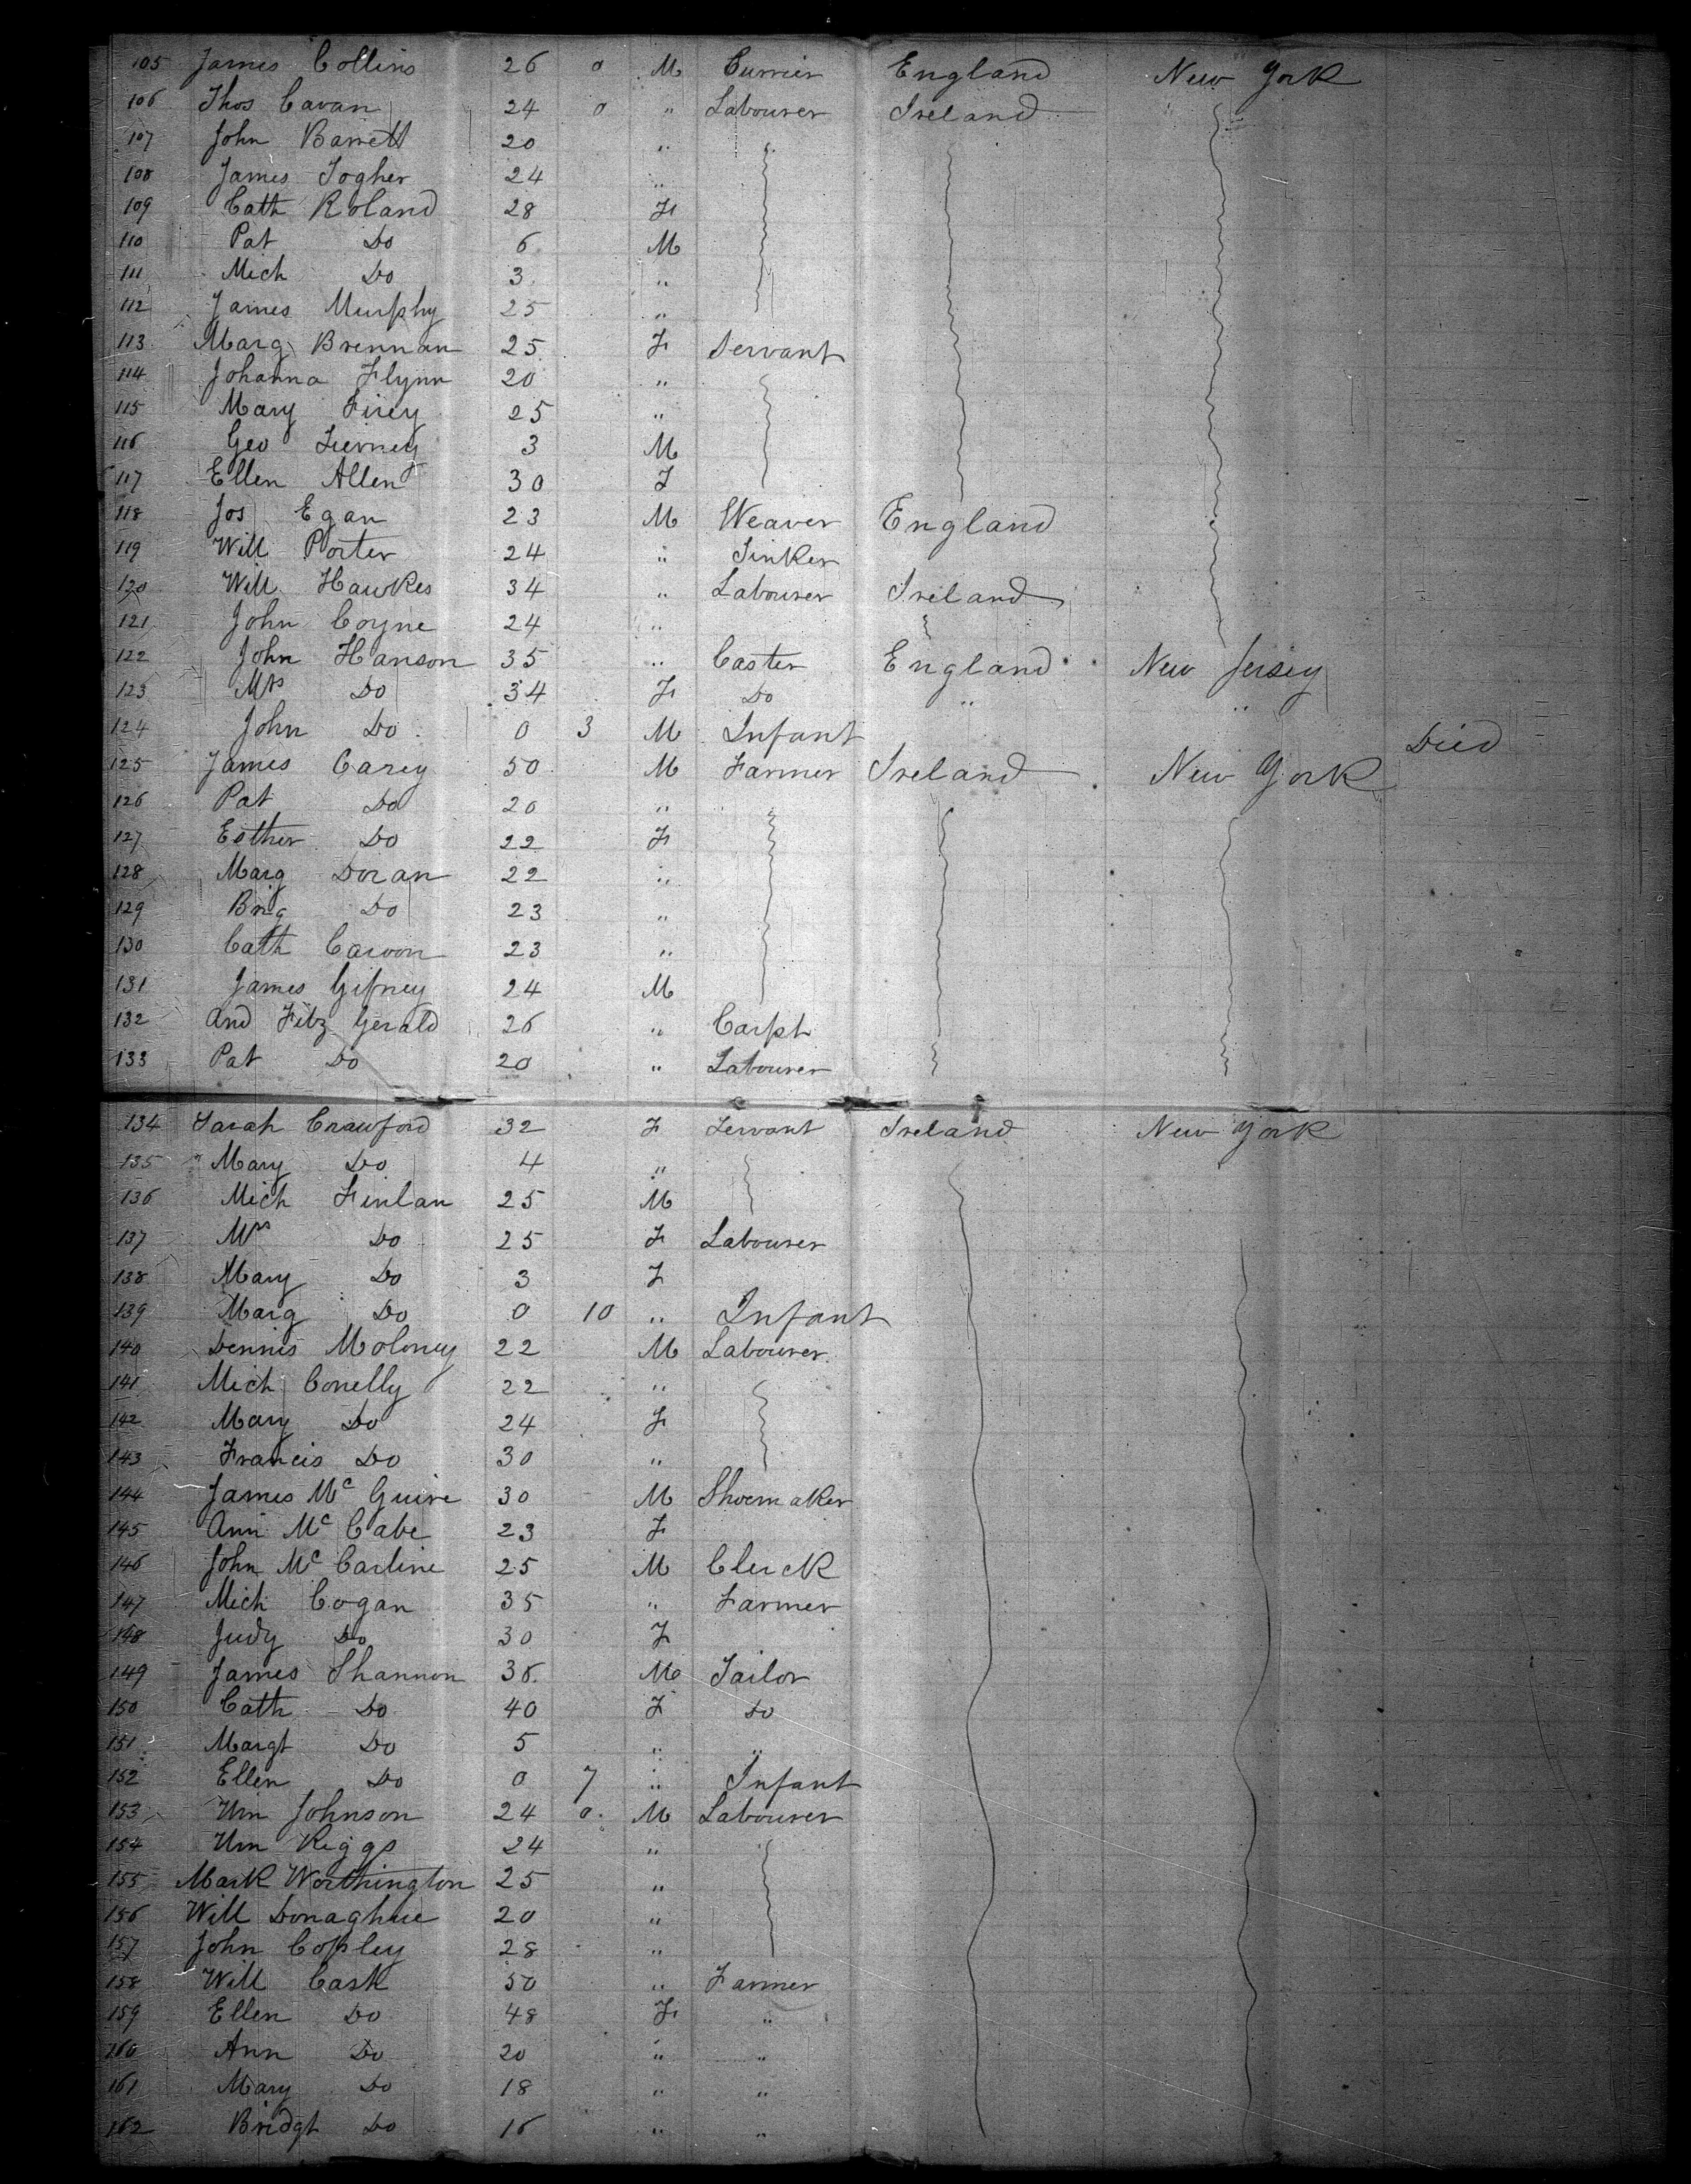 105 James Collins 26 0 M Currier England New York
106 Thos Cavan 24 0 " Labourer Ireland
107 John Barrett 20 "
108 James Togher 24 "
109 Cath Roland 28 F
110 Pat Do 6 M
111 Mich Do 3 "
112 James Murphy 25 "
113 Marg Brennan 25 F Servant
114 Johanna Flynn 20 "
115 Mary 25 "
116 Geo 3 M
117 Ellen Allen 30 F
118 Jos Egan 23 M Weaver England
119 Will Porter 24 " Sinker
120 Will Hawkes 34 " Labourer Ireland
121 John Coyne 24 "
122 John Hanson 35 " Caster England New Jersey
123 Mrs Do 34 F Do " "
124 John Do 0 3 M Infant Died
125 James Carey 50 M Farmer Ireland New York
126 Pat Do 20 "
127 Esther Do 22 F
128 Marg Doran 22 "
129 Brig Do 23 "
130 Cath 23 "
131 James 24 M
132 And Fitz Gerald 26 " Carpt
133 Pat Do 20 " Labourer
134 Sarah Crawford 32 F Servant Ireland New York
135 Mary Do 4 "
136 Mich Finlan 25 M
137 Mrs Do 25 F Labourer
138 Mary Do 3 F
139 Marg Do 0 10 " Infant
140 Dennis Moloney 22 M Labourer
141 Mich Conelly 22 "
142 Mary Do 24 F
143 Francis Do 30 "
144 James Mc Guire 30 M Shoemaker
145 Ann Mc Cabe 23 F
146 John Mc Carline 25 M Clerck
147 Mich Cogan 35 " Farmer
148 Judy Do 30 F
149 James Shannon 36 M Tailor
150 Cath Do 40 F Do
151 Margt Do 5 " "
152 Ellen Do 0 7 " Infant
153 Wm Johnson 24 0 M Labourer
154 Wm Riggs 24 "
155 Mark Worthington 25 "
156 Will Donaghue 20 "
157 John Copley 28 "
158 Will Cash 50 " Farmer
159 Ellen Do 48 F "
160 Ann Do 20 " "
161 Mary Do 18 " "
162 Bridgt Do 16 " "